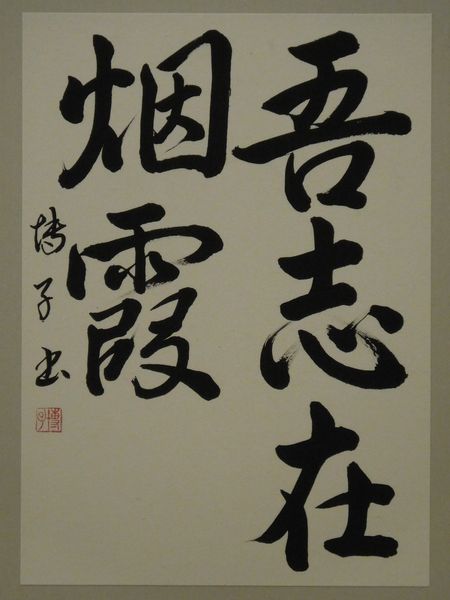 吾志在
烟霞
博子书